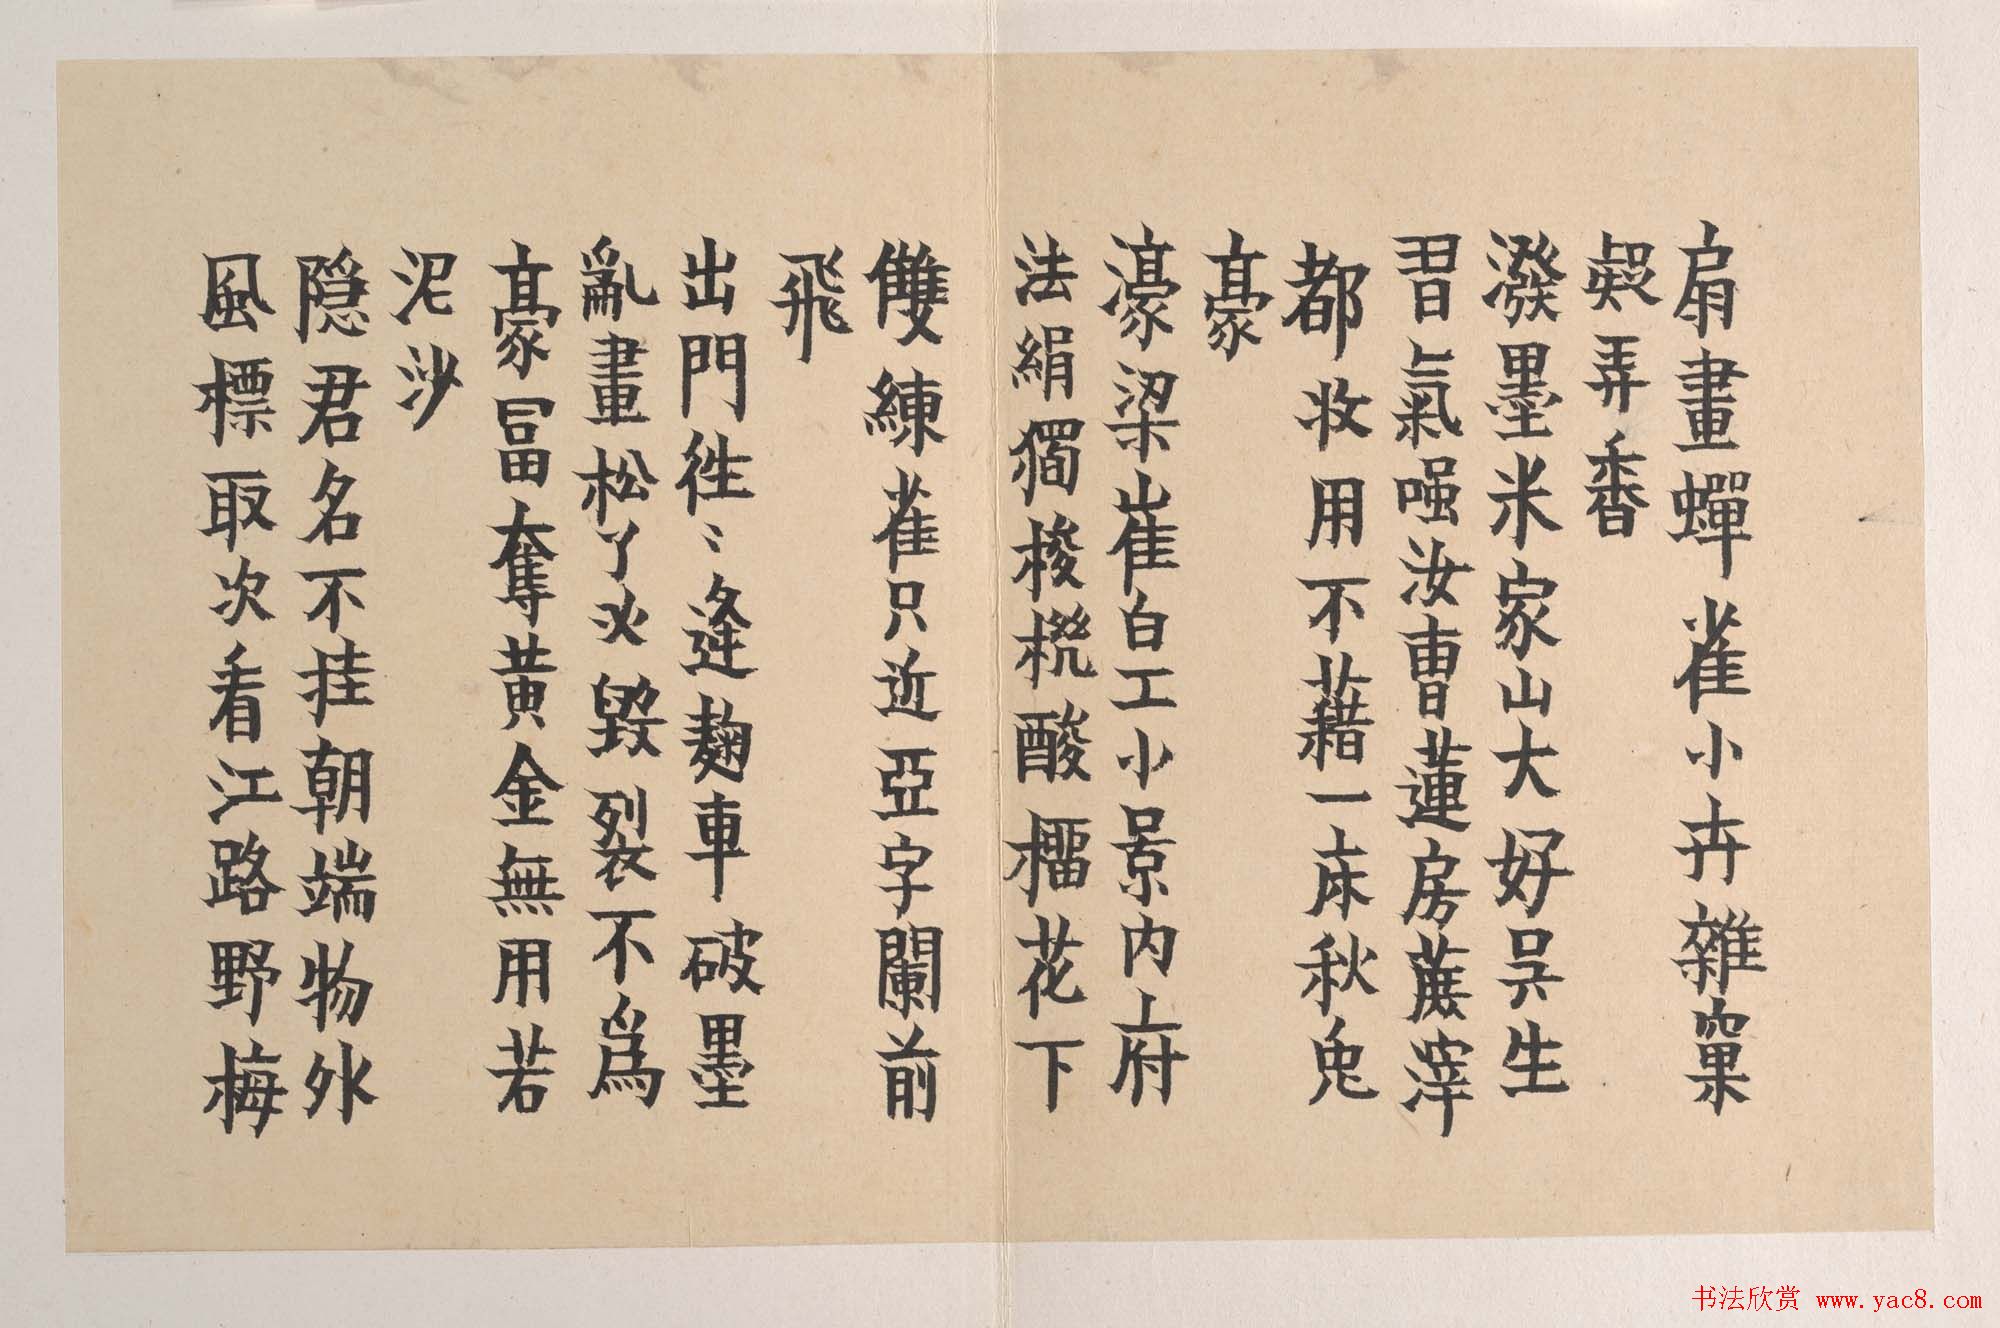 扇畫蟬雀小卉雜窠
娱弄番
潑墨米家山大好呉生
習氣强汝曹蓮房蔗滓
都收用不藉一床秋兔
豪
濠梁崔白工小景内府
法絹獨梭機酸榴花下
雙練雀只近亞字闌前
飛
出門徃〻逢麹車破墨
亂畫松丫㸚毀裂不爲
豪冨奪黄金無用若
泥沙
隐君名不挂朝端物外
風標取次看江路野梅
书法欣赏 www.yac8.com